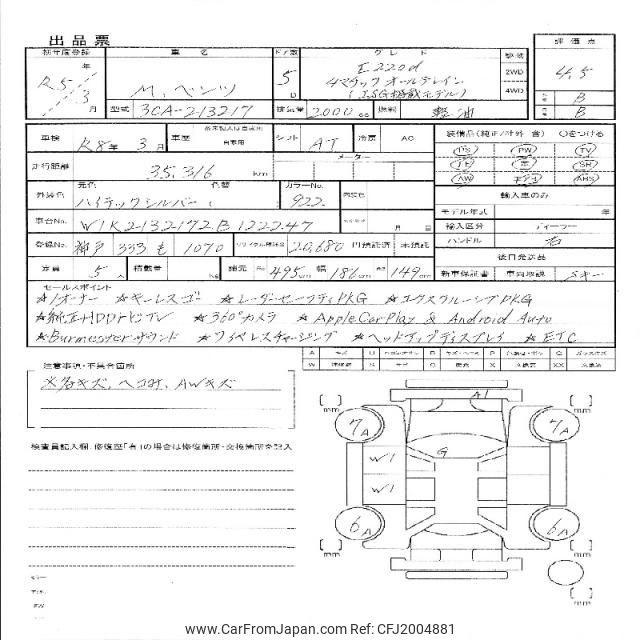 出品票
初年度登録 車名 ドア数 グレード 駆動 評価点
R5年 3月 M,ベンツ 5D E220d 2WD 4.5
4マチック オールテレイン
(ISG搭載モデル) 4WD B
型式 3CA-213217 排気量 2000cc 燃料 軽油 B
車検 R8年 3月 車歴 自家用 シフト AT 冷房 AC 装備品(純正/社外 含) ○をつける
PS PW TV
走行距離 35,316 km メーター SR
AW ABS
外装色 元色 色替 カラーNo. 内装色 輸入車のみ
ハイテックシルバー( ) 922 モデル年式 年
車台No. W1K2132172B122247 月 日 輸入区分 ディーラー
登録No. 神戸 333 も 1070 リサイクル預託金 20,680 円預託済 未預託 ハンドル 右
後日発送品
定員 5人 積載量 Kg 諸元 長 495cm 幅 186cm 高 149cm 新車保証書 車両取説 スキー
セールスポイント
☆1オーナー ☆キーレスゴー ☆レーダーセーフティPKG ☆エクスクルーシブPKG
☆純正HDDナビTV ☆360°カメラ ☆AppleCarPlay & Android Auto
☆Burmesterサウンド ☆ワイヤレスチャージング ☆ヘッドアップディスプレイ ☆ETC
注意事項・不具合箇所
※各キズ、ヘコミ、AWキズ
検査員記入欄:修復歴「有」の場合は修復箇所・交換箇所を記入
A1
7A 7A
G
W1
W1
6A 6A
mm mm
mm mm
mm
www.CarFromJapan.com Ref: CFJ2004881